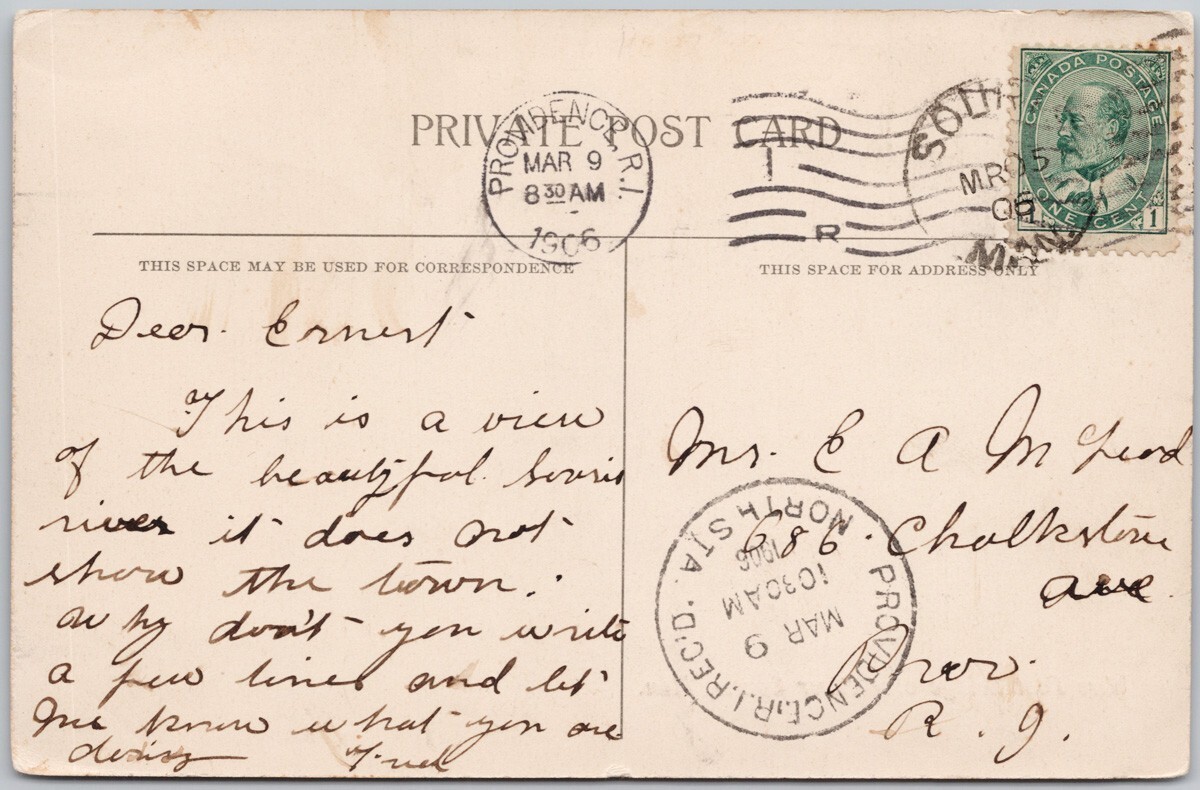 PRIVATE POST CARD
PROVIDENCE, R.I.
MAR 9
8 30 AM
1906
R
SOURIS
MR 05
06
MAN.
CANADA POSTAGE
ONE CENT
1
THIS SPACE MAY BE USED FOR CORRESPONDENCE
THIS SPACE FOR ADDRESS ONLY
Dear Ernest
This is a view
of the beautyful Souris
river it does not
show the town.
Why don't you write
a few lines and let
me know what you are
doing Fred
Mr. E A McLeod
686 Chalkstone
ave
Prov.
R. I.
PROVIDENCE, R.I. REC'D.
NORTH STA.
MAR 9
10 30 AM
1906